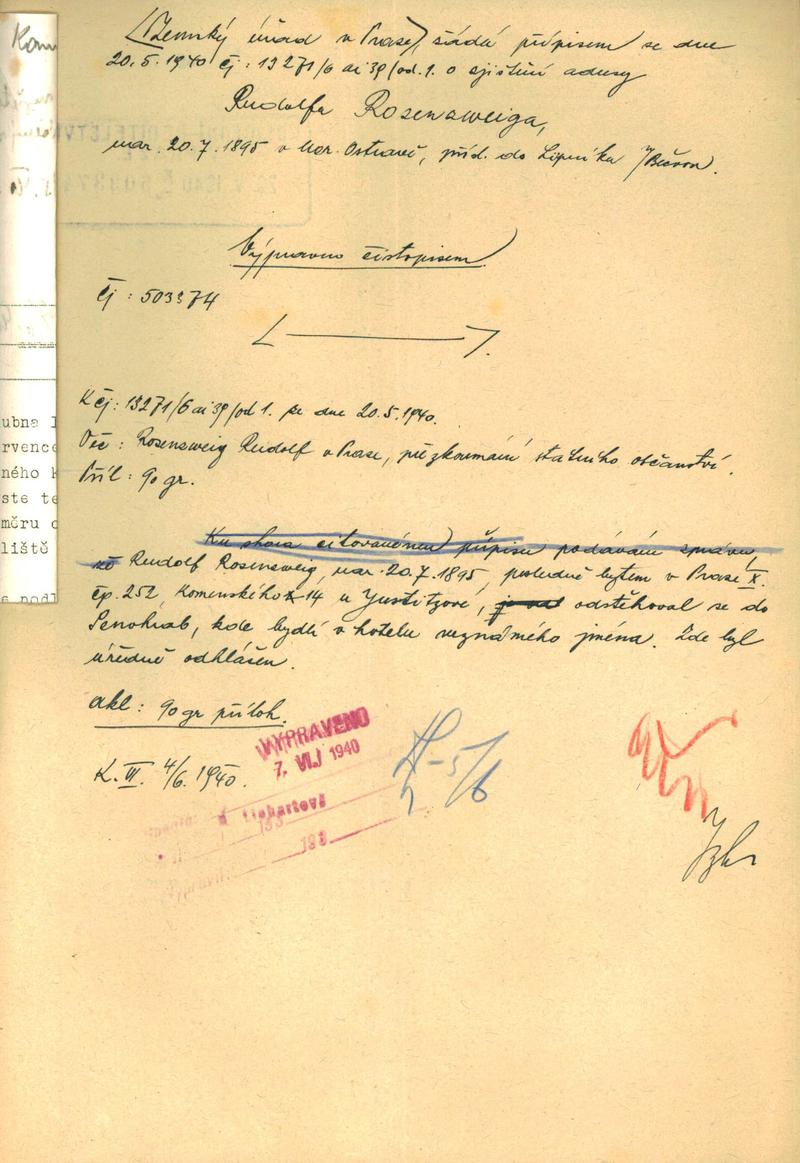 Zemský úřad v Praze, žádá přípisem ze dne
20.5.1940 čj: 13271/6 ai 39/od 1. o zjištění adresy
Rudolfa Rosenzweiga,
nar. 20.7.1895 v Mor. Ostravě, přísl. do Lipníka n/Bečvou.
Výpravno čistopisem
Čj: 503374
K čj: 13271/6 ai 39/od 1. ze dne 20.5.1940.
Věc: Rosenzweig Rudolf v Praze, přezkoumání státního občanství.
Příl: 90 gr.
Ku shora citovanému přípisu podávám zprávu,
že Rudolf Rosenzweig, nar. 20.7.1895, posledně bytem v Praze X.
čp. 252, Komenského 14 u Justitzové, odstěhoval se do
Senohrab, kde bydlí v hotelu neznámého jména. Zde byl
úředně odhlášen.
akl: 90 gr příloh.
VYPRAVENO
7. VI. 1940
K. III. 4/6. 1940.
5/6
Linhartová
193
193
Kom
ubna 1
rvence
ného k
ste te
měru o
liště
a podl